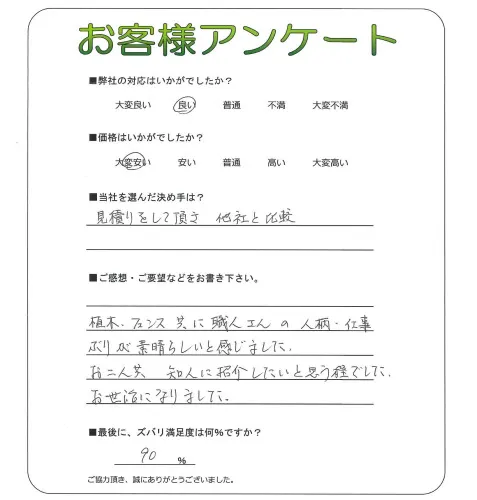 お客様アンケート
■弊社の対応はいかがでしたか？
大変良い 良い 普通 不満 大変不満
■価格はいかがでしたか？
大変安い 安い 普通 高い 大変高い
■当社を選んだ決め手は？
見積りをして頂き 他社と比較
■ご感想・ご要望などをお書き下さい。
植木・フェンス共に職人さんの人柄・仕事
ぶりが素晴らしいと感じました。
お二人共 知人に紹介したいと思う程でした。
お世話になりました。
■最後に、ズバリ満足度は何%ですか？
90 %
ご協力頂き、誠にありがとうございました。